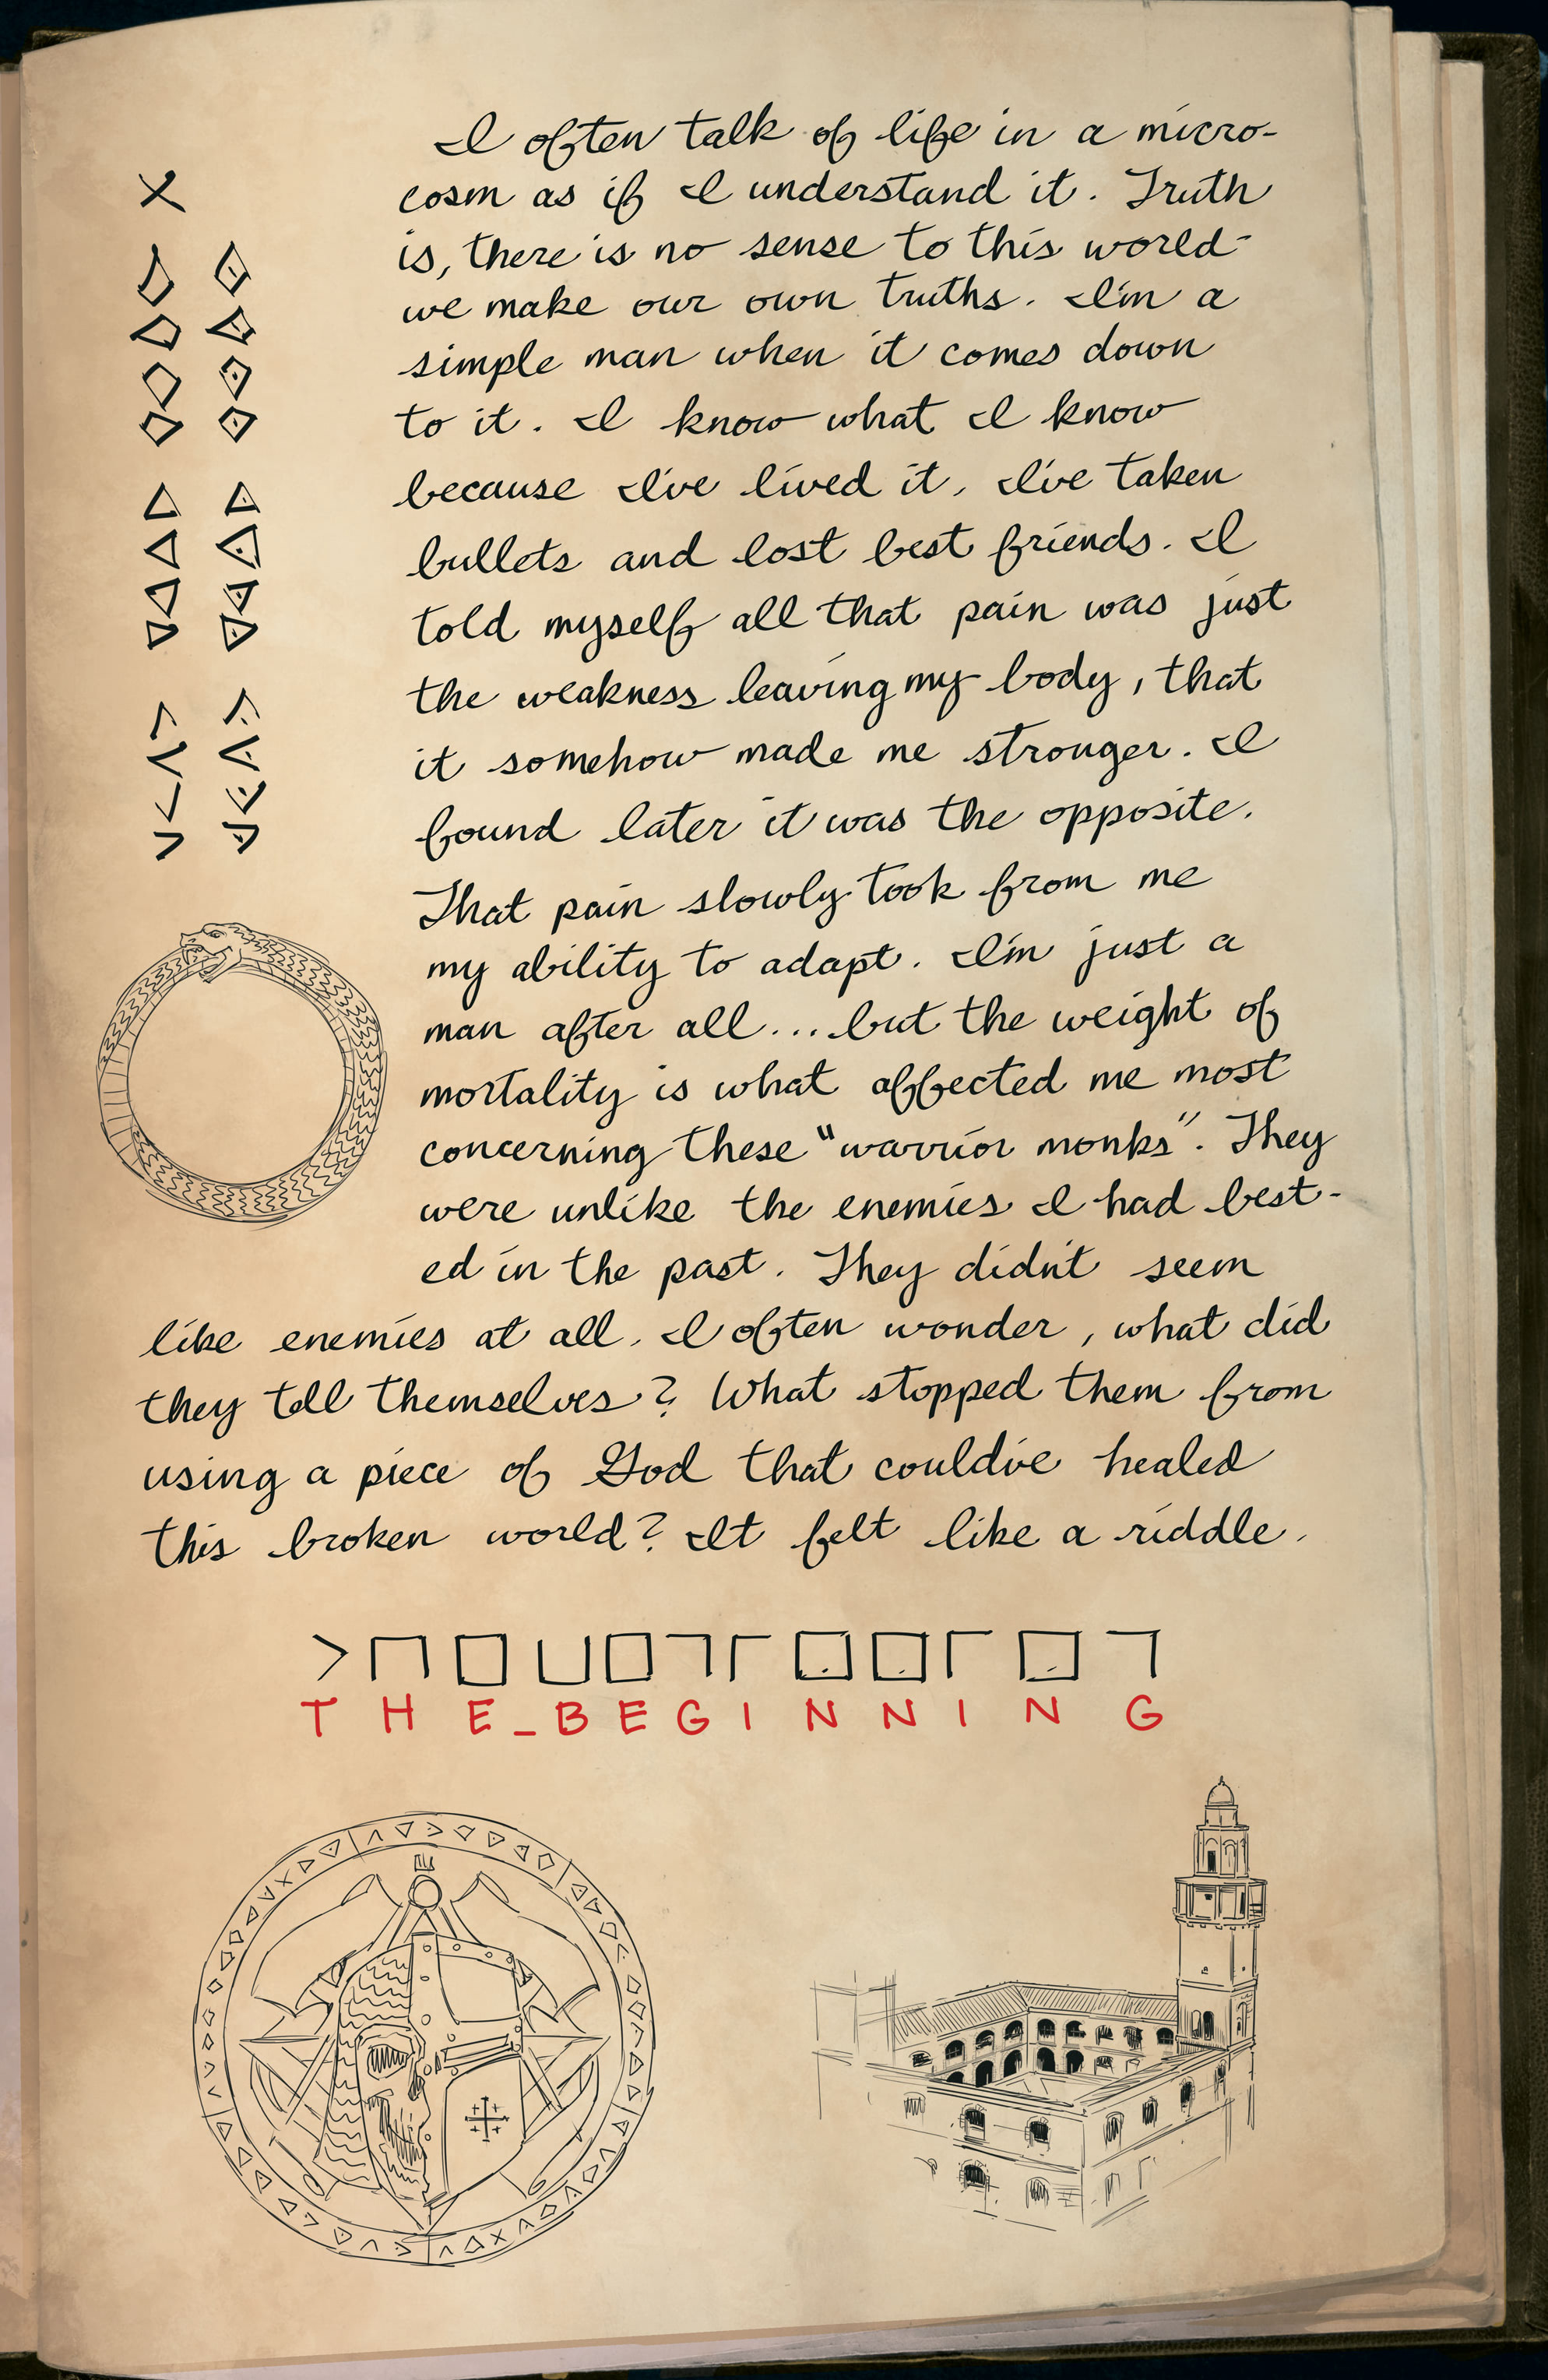 I often talk of life in a micro-
cosm as if I understand it. Truth
is, there is no sense to this world-
we make our own truths. I'm a
simple man when it comes down
to it. I know what I know
because I've lived it, I've taken
bullets and lost best friends. I
told myself all that pain was just
the weakness leaving my body, that
it somehow made me stronger. I
found later it was the opposite.
That pain slowly took from me
my ability to adapt. I'm just a
man after all... but the weight of
mortality is what affected me most
concerning these "warrior monks". They
were unlike the enemies I had best-
ed in the past. They didn't seem
like enemies at all. I often wonder, what did
they tell themselves? What stopped them from
using a piece of God that could've healed
this broken world? It felt like a riddle.
THE_BEGINNING